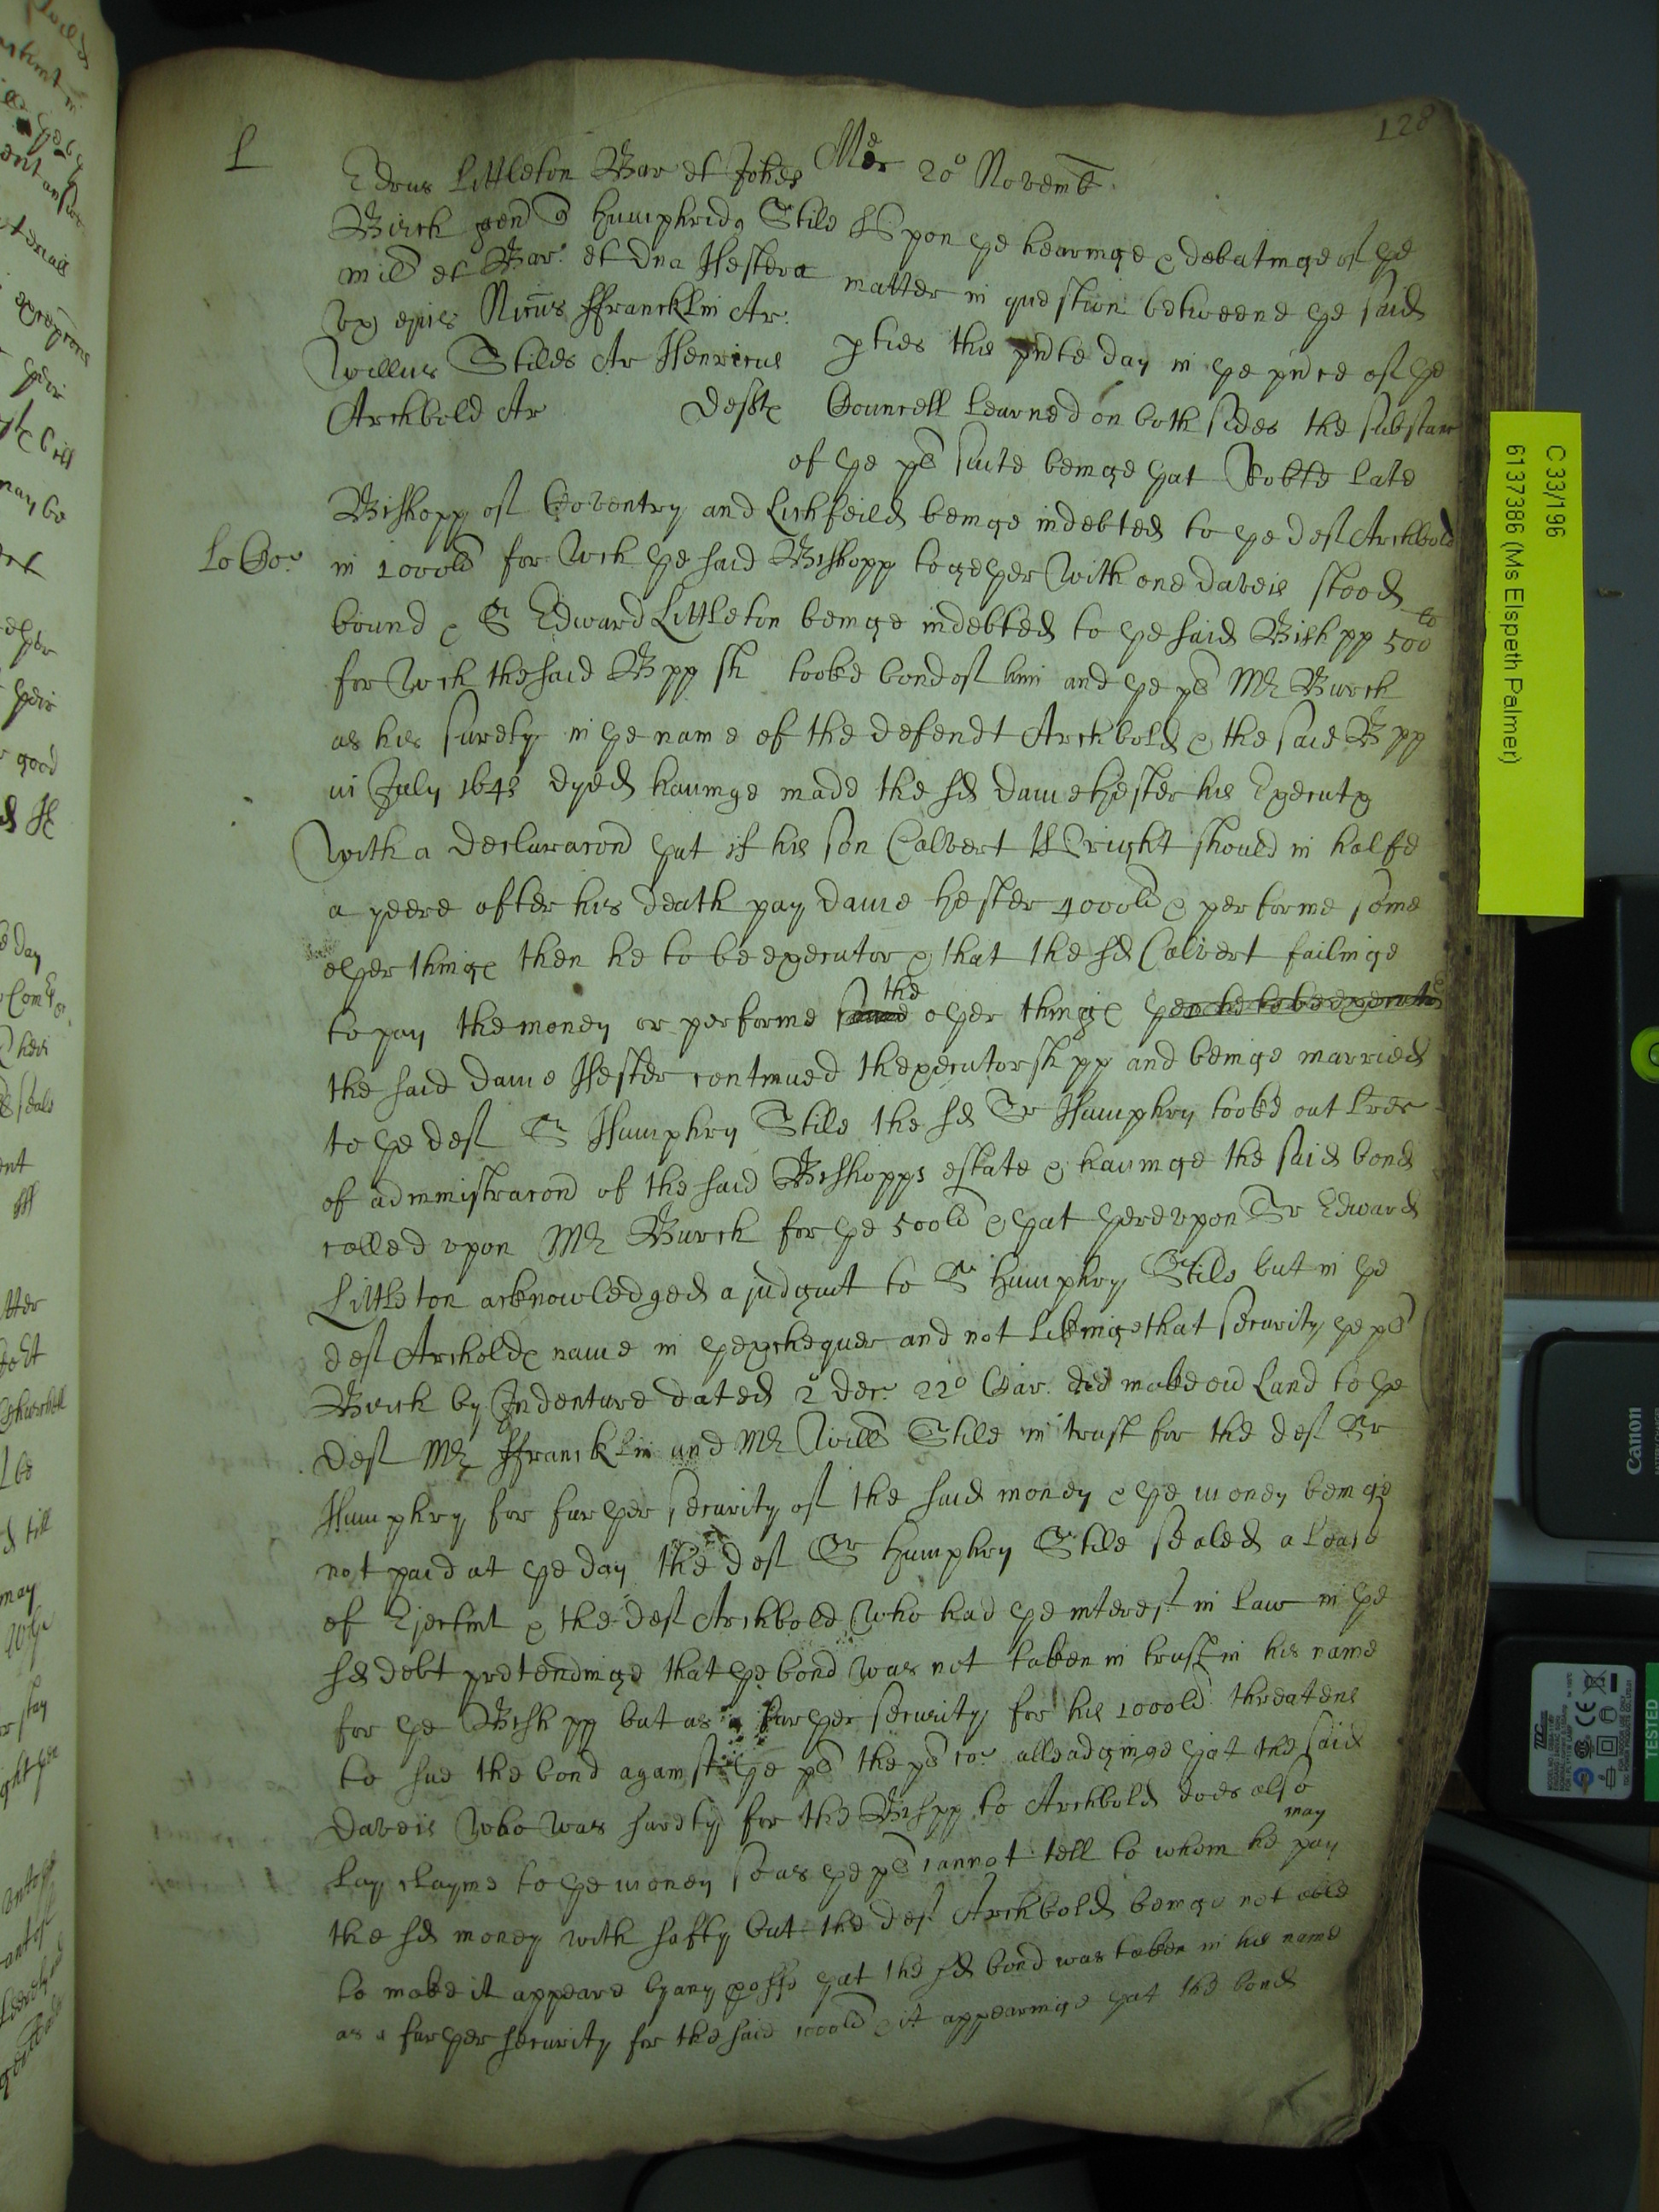 128
L
Mer 20° Novemb.
Edrus Littleton Bar et Johes
Birch gen q Humphridus Stile
mil et Bar. et Dna Hestera
vx eius Nicus ffrancklin Ar.
Willus Stiles Ar Henricus
Archbold Ar deftes
Vpon ye hearinge & debatinge of ye
matter in question betweene ye said
pties this pnte day in ye pnce of ye
Councell Learned on both sides the substance
of ye pls suite beinge yat Robte late
Bishopp of Coventry and Lichfeild beinge indebted to ye def Archbold
Lo Cor.
in 1000ld for wch ye said Bishopp togeyer with one Daveis stood
bound & Sr Edward Littleton beinge indebted to ye said Bishpp 500ld
for wch the said Bpp sh tooke bond of him and ye pl Mr Burch
as his surety in ye name of the defendt Archbold & the said Bpp
in July 1643 dyed havinge made the sd dame Hester his Executx
with a declaracond yat if his son Calvert Wright should in halfe
a yeere after his death pay dame Hester 4000ld & performe some
oyer thinges then he to be executor & that the sd Calvert failinge
to pay the money or performe some the oyer thinges yen he to be executor
the said dame Hester continued thexecutorshpp and beinge married
to ye def Sr Humphry Stile the sd Sr Humphry tooke out Lres
of administracond of the said Bishopps estate & havinge the said bond
called vpon Mr Burch for ye 500ld & yat yerevpon Sr Edward
Littleton acknowledged a judgmt to Sr Humphry Stile but in ye
def Archolds name in yexchequer and not likeinge that security ye pl
Birch by Indenture dated 2° Dec. 22° Car. did make ou Land to ye
def Mr ffrancklin and Mr Will Stile in trust for the def Sr
Humphry for furyer security of the said money & ye money beinge
not paid at ye day the def Sr Humphry Stile sealed a Lease
of Ejectmt & the def Archbold who had ye interest in Law in ye
sd debt pretendinge that ye bond was not taken in trust in his name
for ye Bishpp but as a furyer security for his 1000ld threatens
to sue the bond against ye pl the pl Cor. alleadginge yat the said
Daveis who was surety for the Bishpp to Archbold does also
Lay clayme to ye money so as ye pl cannot tell to whom he may pay
the sd money with safty but the def Archbold beinge not able
to make it appeare by any proffe yat the sd bond was taken in his name
as a furyer security for the said 1000ld & it appearinge yat the bond
C 33/196
6137386 (Ms Elspeth Palmer)
Canon
TESTED